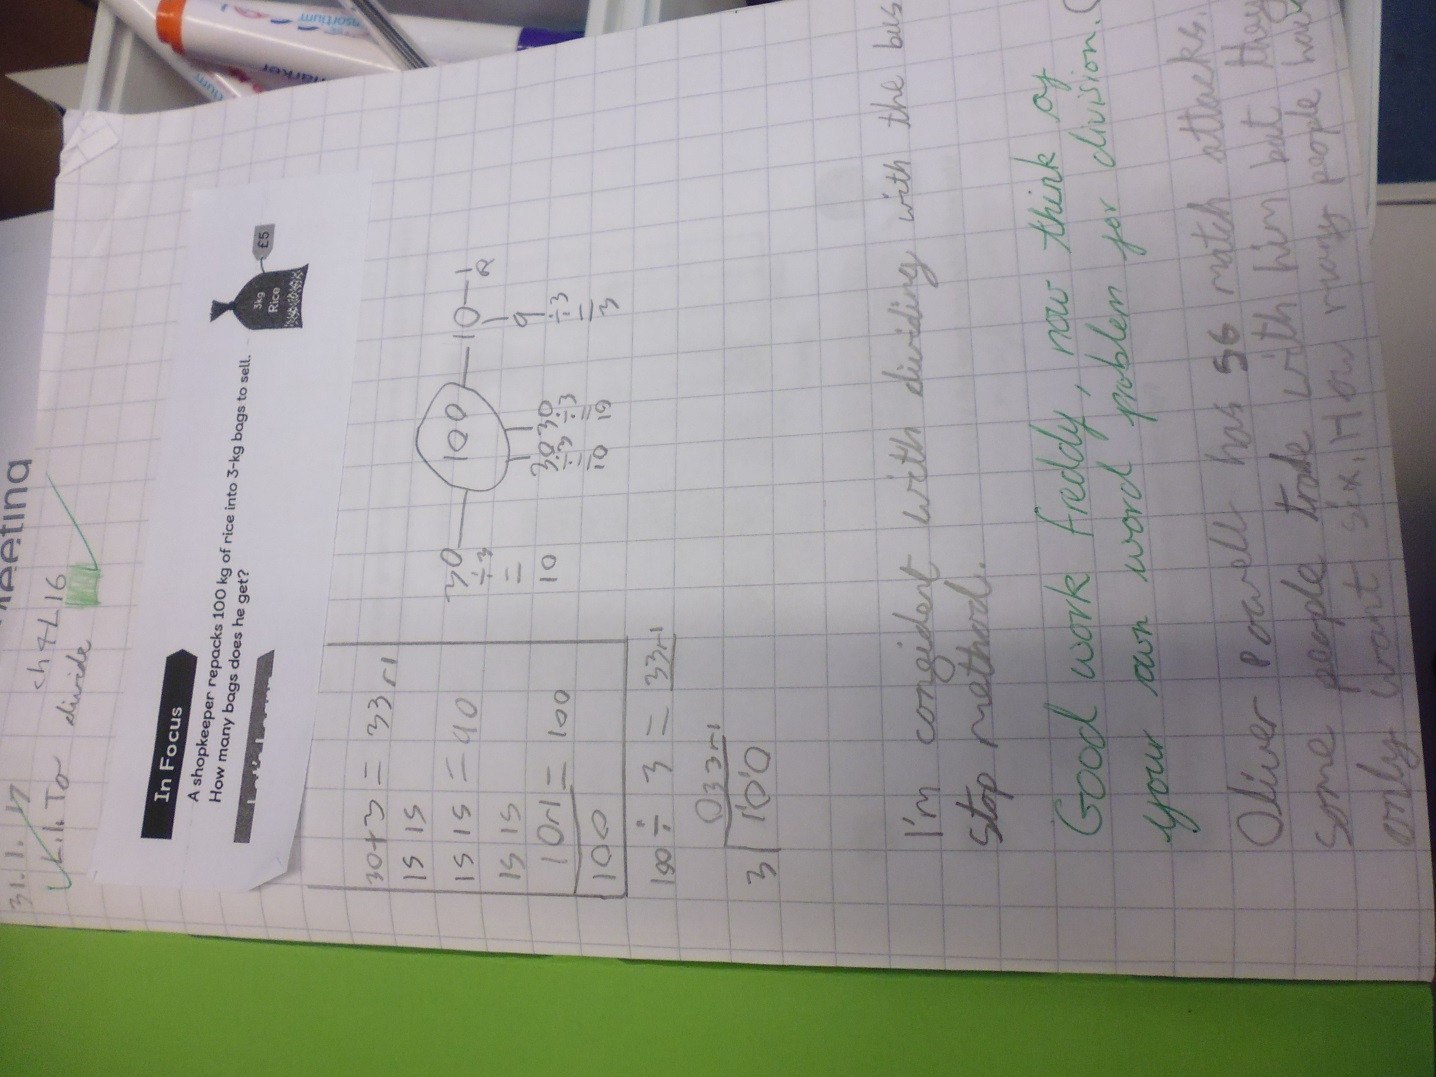 31.1.17 ch4L16
L.I. To divide
In Focus
A shopkeeper repacks 100 kg of rice into 3-kg bags to sell.
How many bags does he get?
3kg
Rice
£5
30+3=33r1
15 15
15 15 = 90
15 15
10r1 = 100
100
100 ÷ 3 = 33r1
033r1
3 100
100
30 ÷3 = 10
30 ÷3 = 10
30 ÷3 = 10
10 1 R
9 ÷3 = 3
I'm confident with dividing with the bus
stop method.
Good work Freddy, now think of
your own word problem for division.
Oliver Powell has 56 match attacks
some people trade with him but they
only want six, How many people have